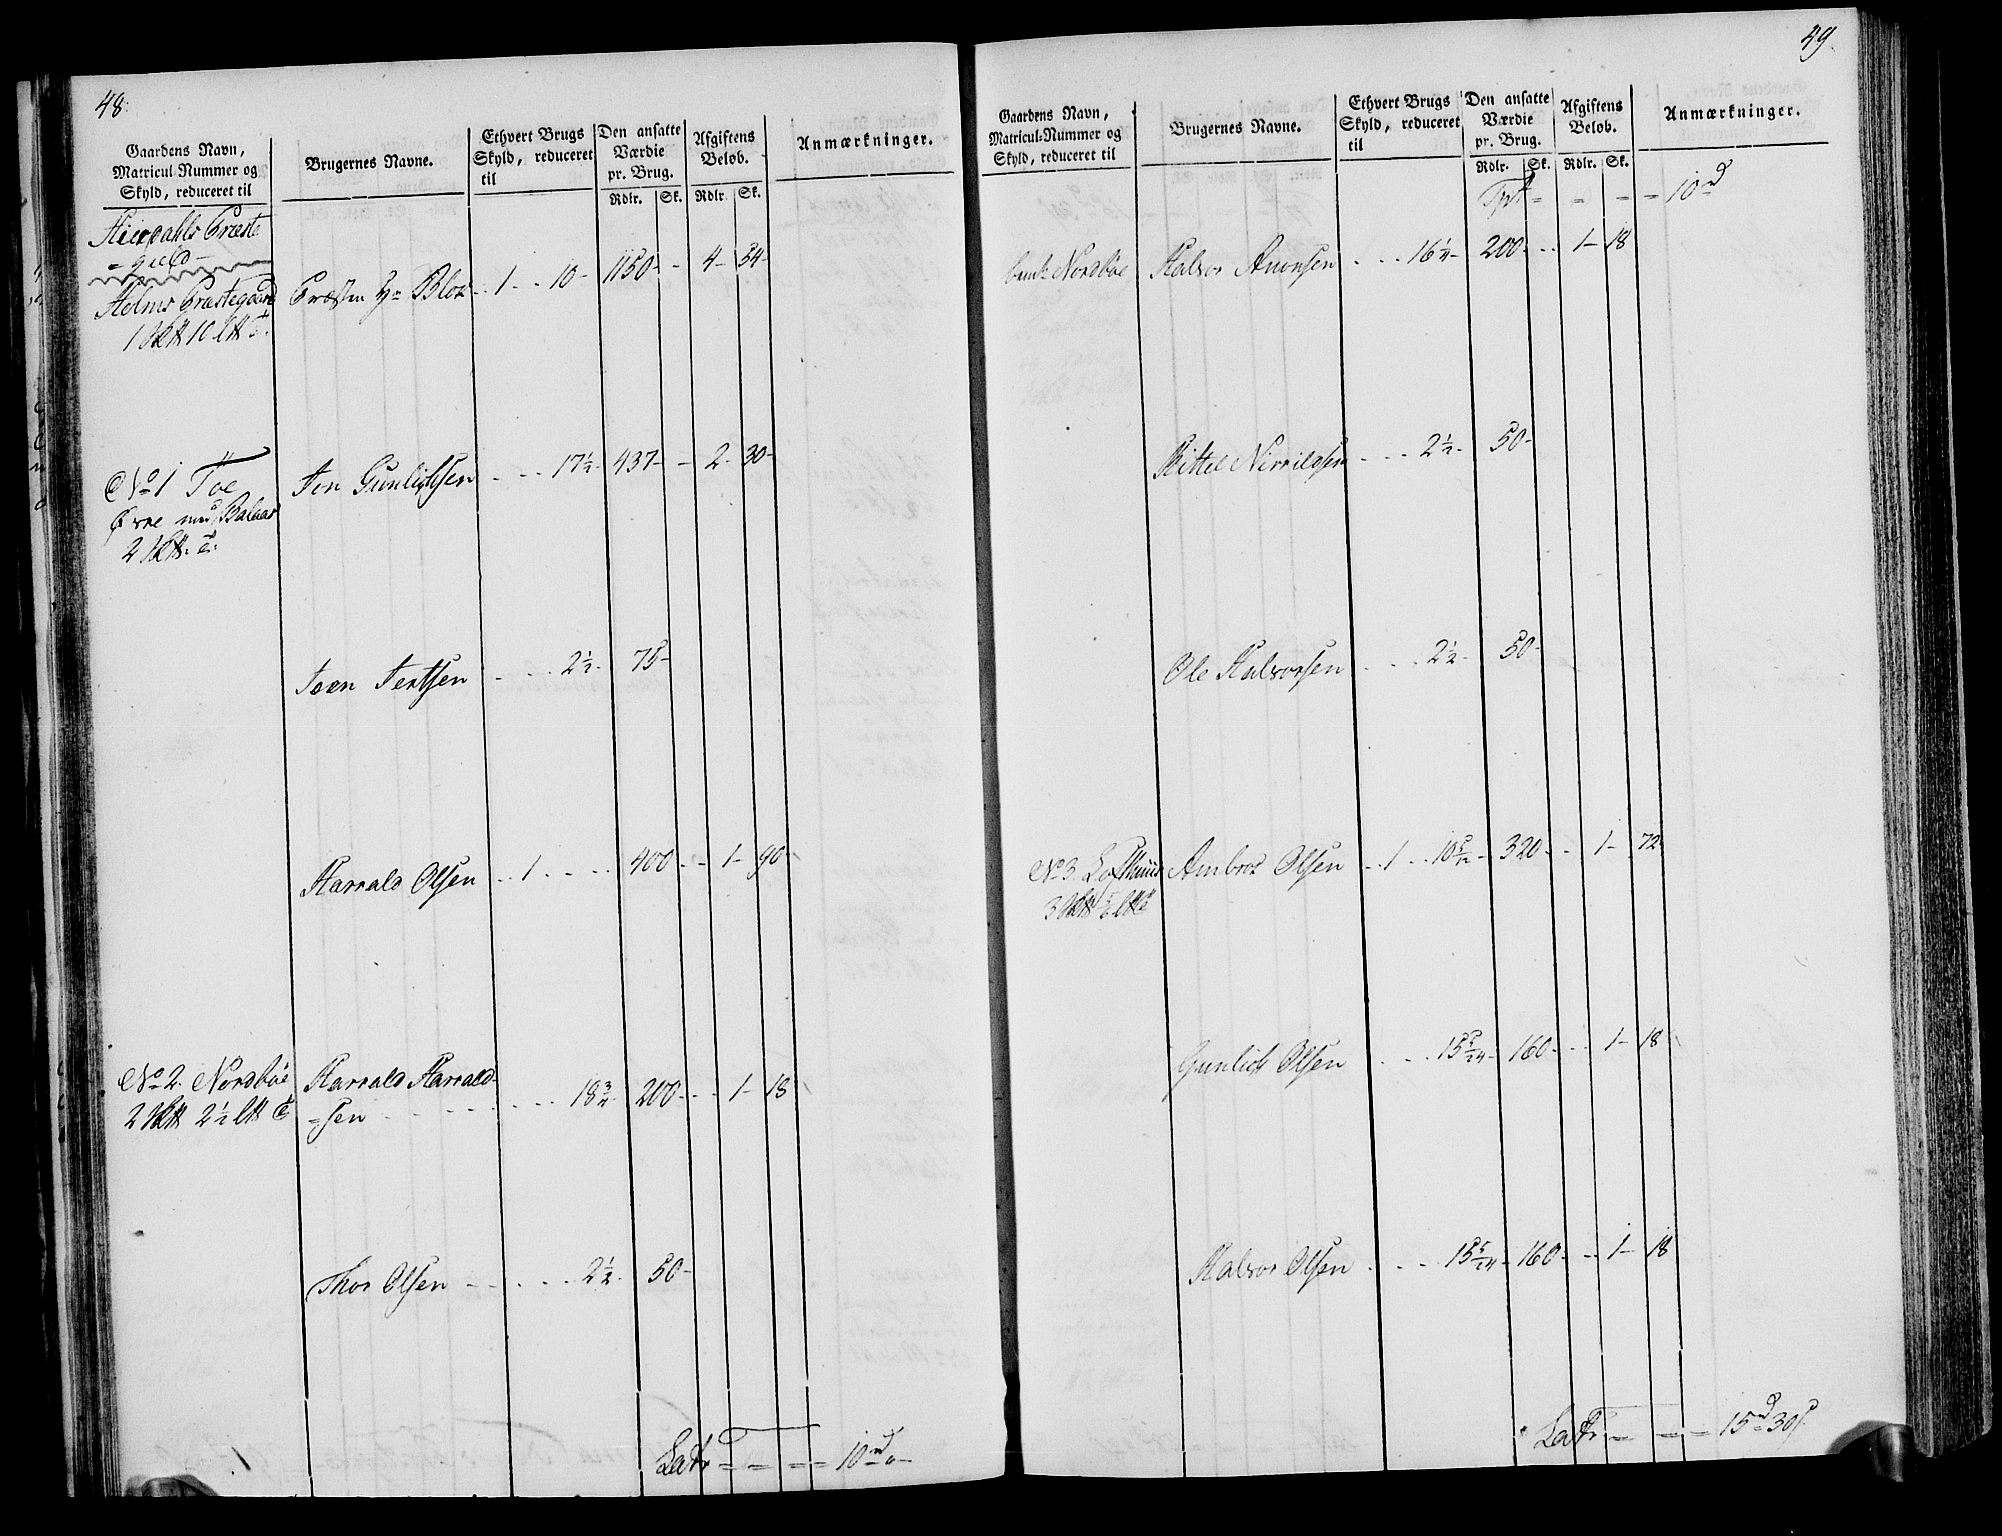 48.
Gaardens Navn,
Matricul-Nummer og
Skyld, reduceret til
Brugernes Navne.
Ethvert Brugs
Skyld, reduceret
til
Den ansatte
Værdie
pr. Brug.
Rdlr. Sk.
Afgiftens
Beløb.
Rdlr. Sk.
Anmærkninger.
Hierdahls Præste
= gield
Holms Præstegaard Præsten Hr Blok 1 10 1150 4 54
1 10
No 1 Toe Jon Gunlichsen 17½ 437 2 30
Øvre
2
Joen Jertsen 2½ 75
Harrald Olsen 1 400 1 90
No 2. Nordbøe Harrald Harrald- 18¾ 200 1 18
2 2½ =sen
Thor Olsen 2½ 50
Latr = = = 10
49
Gaardens Navn,
Matricul-Nummer og
Skyld, reduceret til
Brugernes Navne.
Ethvert Brugs
Skyld, reduceret
til
Den ansatte
Værdie
pr. Brug.
Rdlr. Sk.
Afgiftens
Beløb.
Rdlr. Sk.
Anmærkninger.
Tpt = = = = 10
Nordbøe Halvor Anonsen 16¼ 200 1 18
Kittel 2½ 50
Ole Halvorsen 2½ 50
No 3. Lofthuus Ambros Olsen 1 10 5/12 320 1 72
3
Gunlich Olsen 15 5/24 160 1 18
Halvor Olsen 15 5/24 160 1 18
Latr = = = 15 30